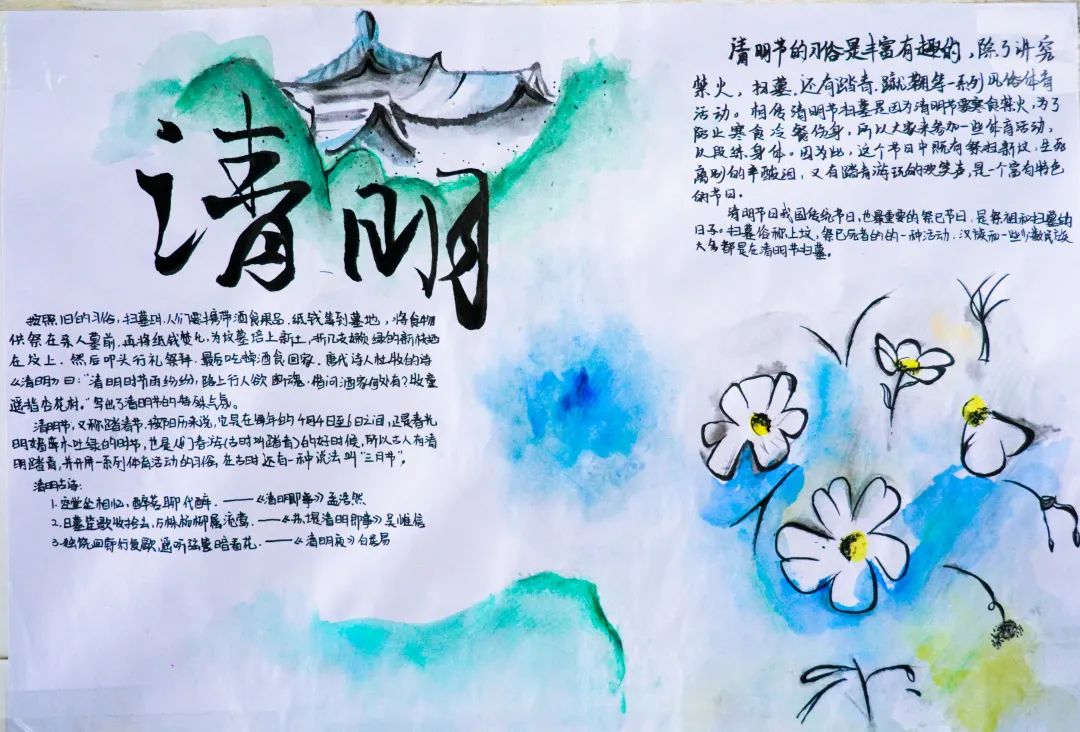 清明
清明节的习俗是丰富有趣的，除了讲究
禁火，扫墓，还有踏青，蹴鞠等一系列风俗体育
活动。相传清明节扫墓是因为清明节要寒食禁火，为了
防止寒食冷餐伤身，所以大家来参加一些体育活动，
以段练身体。因为此，这个节日中既有祭扫新坟，生死
离别的辛酸泪，又有踏青游玩的欢笑声，是一个富有特色
的节日。
清明节日我国传统节日，也最重要的祭已节日，是祭祖和扫墓的
日子。扫墓俗称上坟，祭已死者的的一种活动。汉族和一些少数民族
大多都是在清明节扫墓。
按照旧的习俗，扫墓时，人们要携带酒食果品，纸钱等到墓地，将食物
供祭在亲人墓前，再将纸钱焚化，为坟墓培上新土，折几支嫩绿的新枝插
在坟上，然后叩头行礼祭拜，最后吃掉酒食回家，唐代诗人杜牧的诗
《清明》曰："清明时节雨纷纷，路上行人欲断魂，借问酒家何处有？牧童
遥指杏花村。"写出了清明节的特殊气氛。
清明节，又称踏青节，按阳历来说，它是在每年的4月4日至6日之间，正是春光
明媚草木吐绿的时节，也是人们春游(古时叫踏青)的好时候，所以古人有清
明踏青，并开展一系列体育活动的习俗，在古时还有一种说法叫"三月节"。
清明古诗：
1.空堂坐相忆，酌茗聊代醉．——《清明即事》孟浩然
2.日暮笙歌收拾去，万株杨柳属流莺．——《苏堤清明即事》吴惟信
3.独绕回廊行复歇，遥听弦管暗看花．——《清明夜》白居易